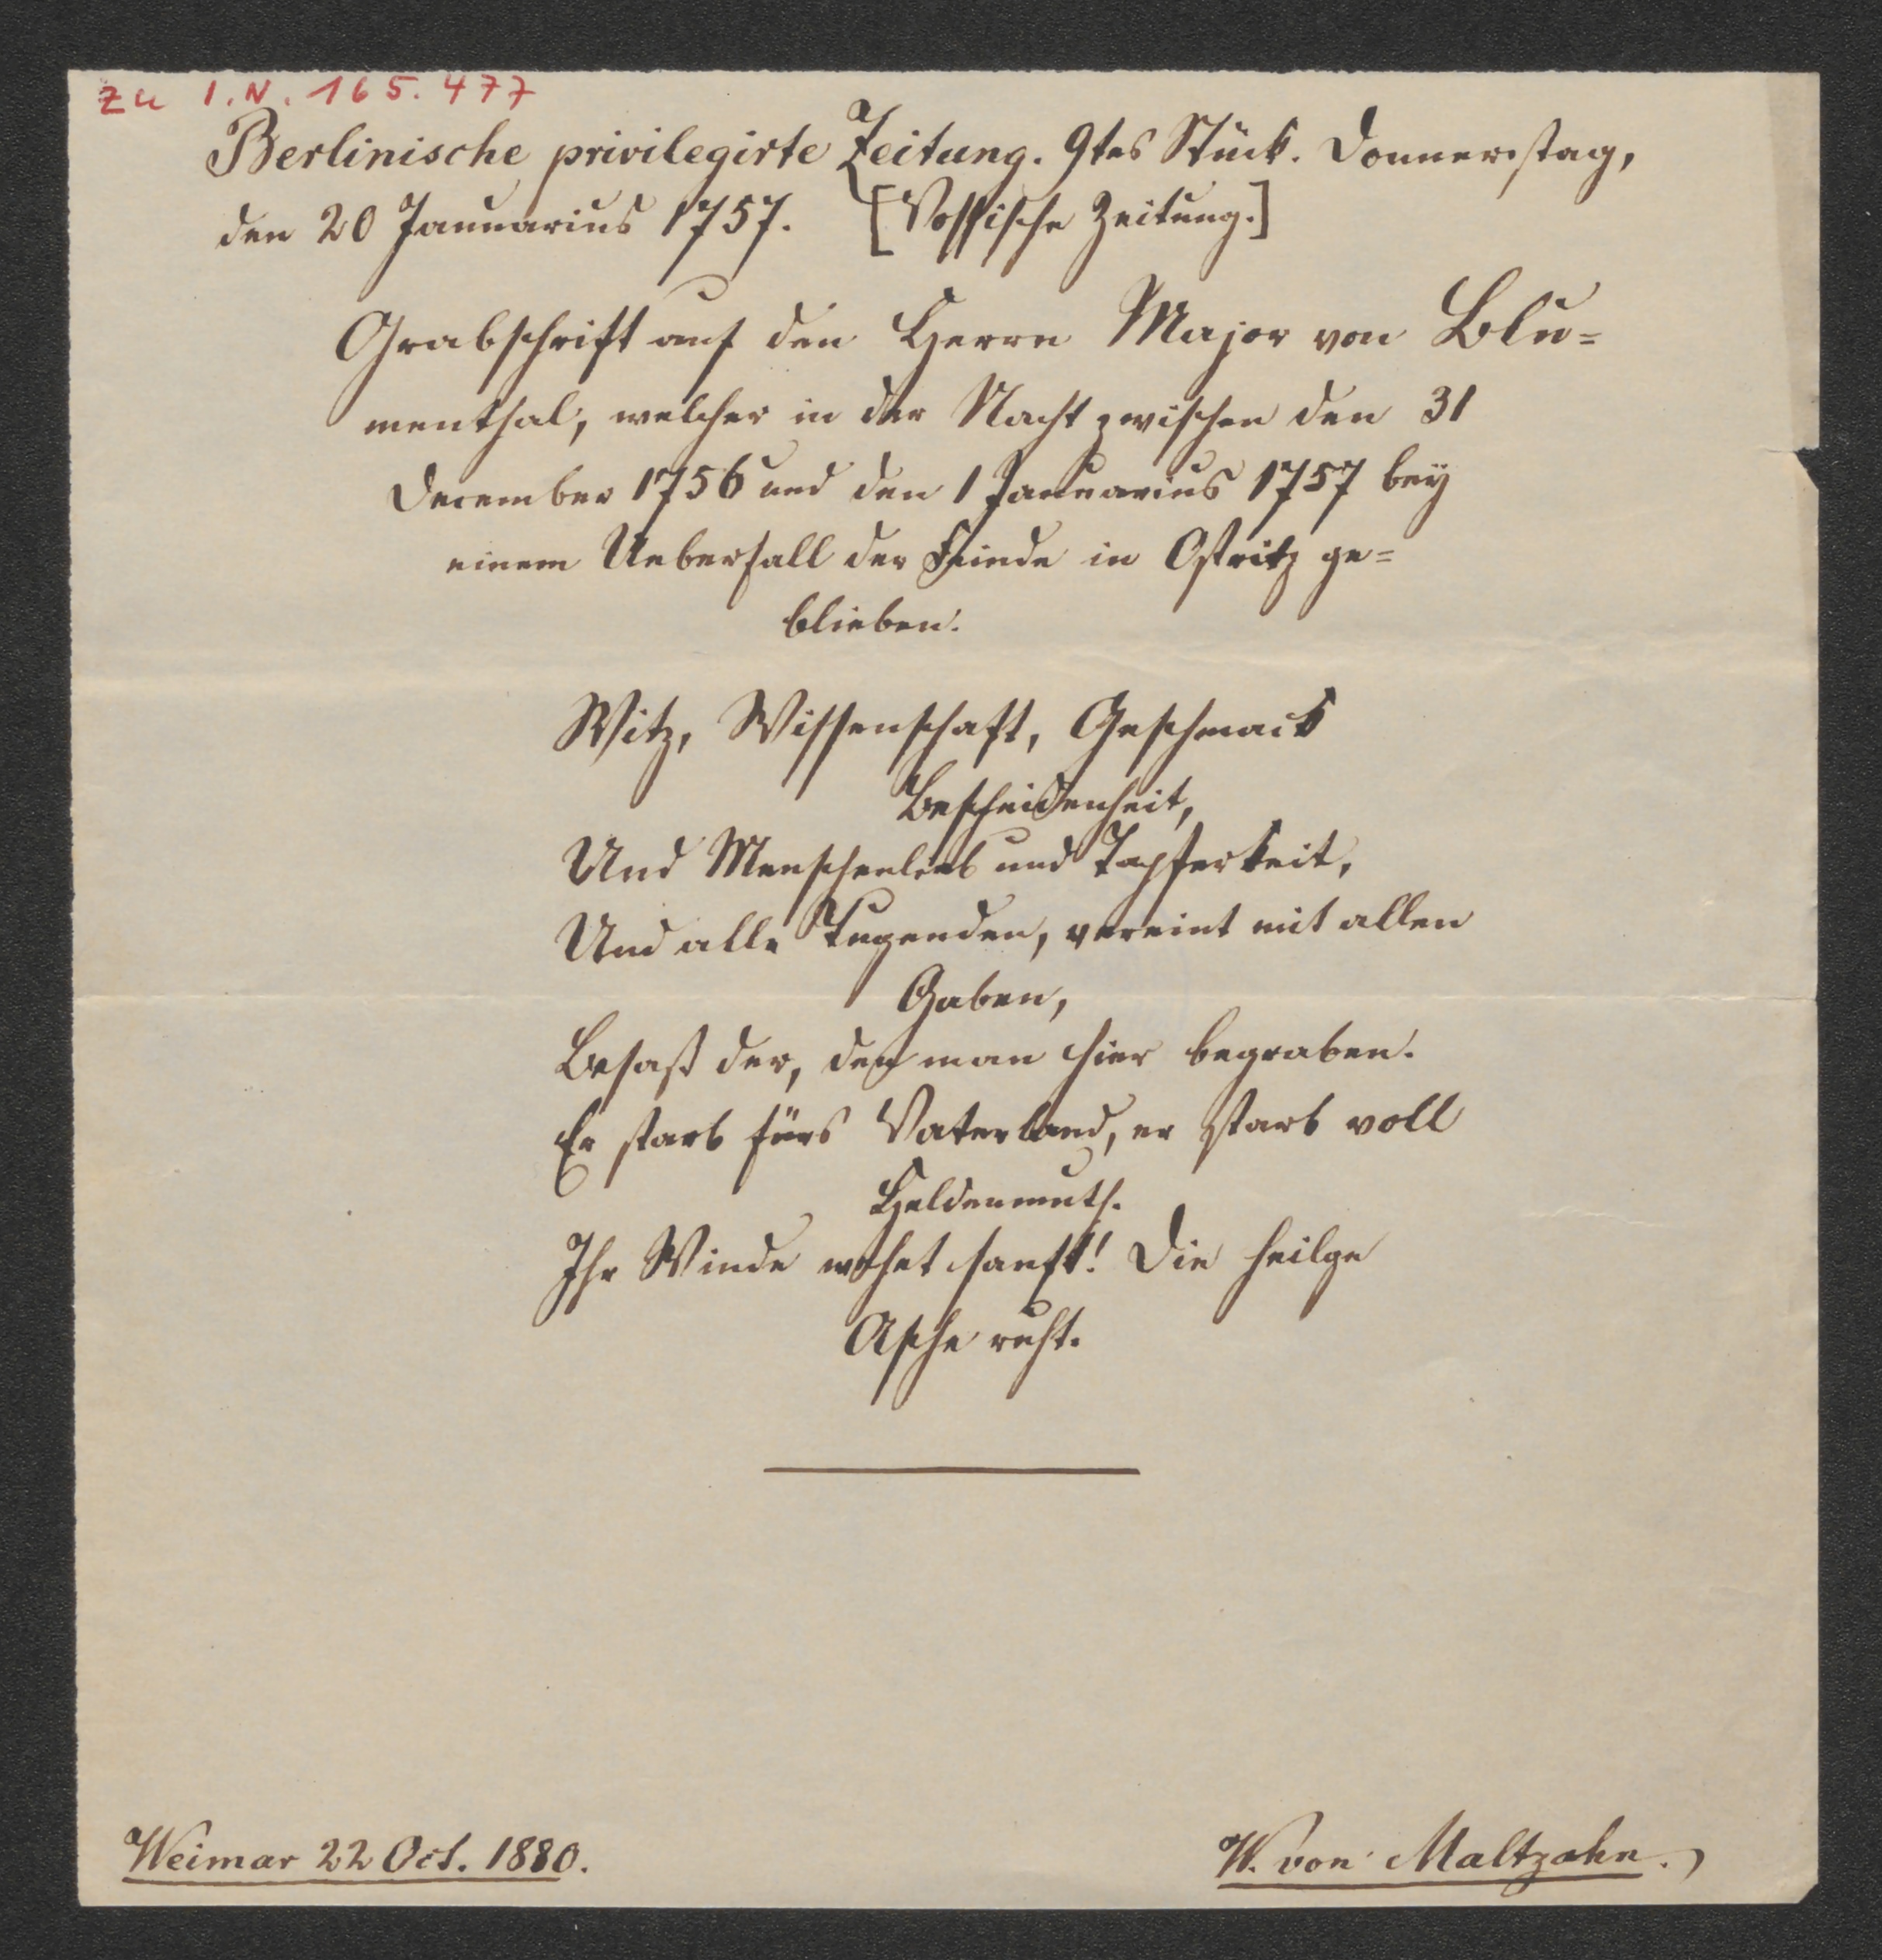 zu I.N. 165.477
Berlinische privilegirte Zeitung. 9tes Stück. Donnerstag,
den 20 Januarius 1757. [Vossische Zeitung.]
Grabschrift auf den Herrn Major von Blu=
menthal, welcher in der Nacht zwischen den 31
December 1756 und den 1 Januarius 1757 bey
einem Ueberfall der Feinde in Ostritz ge=
blieben.
Witz, Wissenschaft, Geschmack
Bescheidenheit,
Und Menschenlieb und Tapferkeit,
Und alle Tugenden, vereint mit allen
Gaben,
Besaß der, den man hier begraben.
Er starb fürs Vaterland, er starb voll
Heldenmuth.
Ihr Winde wehet sanft! Die heilge
Asche ruht.
Weimar 22 Oct. 1880.
W. von Maltzahn.